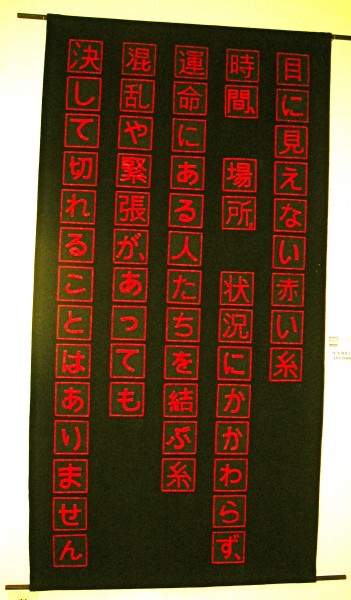 目に見えない赤い糸
時間、 場所、 状況にかかわらず、
運命にある人たちを結ぶ糸、
混乱や緊張が、あっても
決して切れることはありません